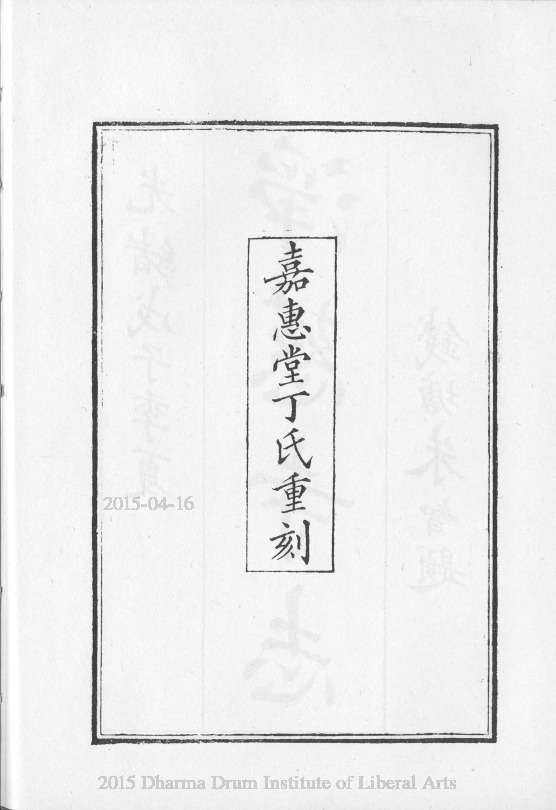 嘉惠堂丁氏重刻
2015-04-16
2015 Dharma Drum Institute of Liberal Arts